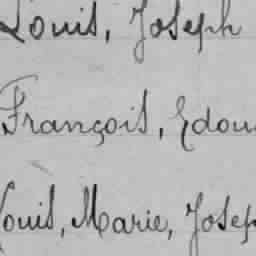 Louis, Joseph
François, Edou
Louis, Marie, Josep